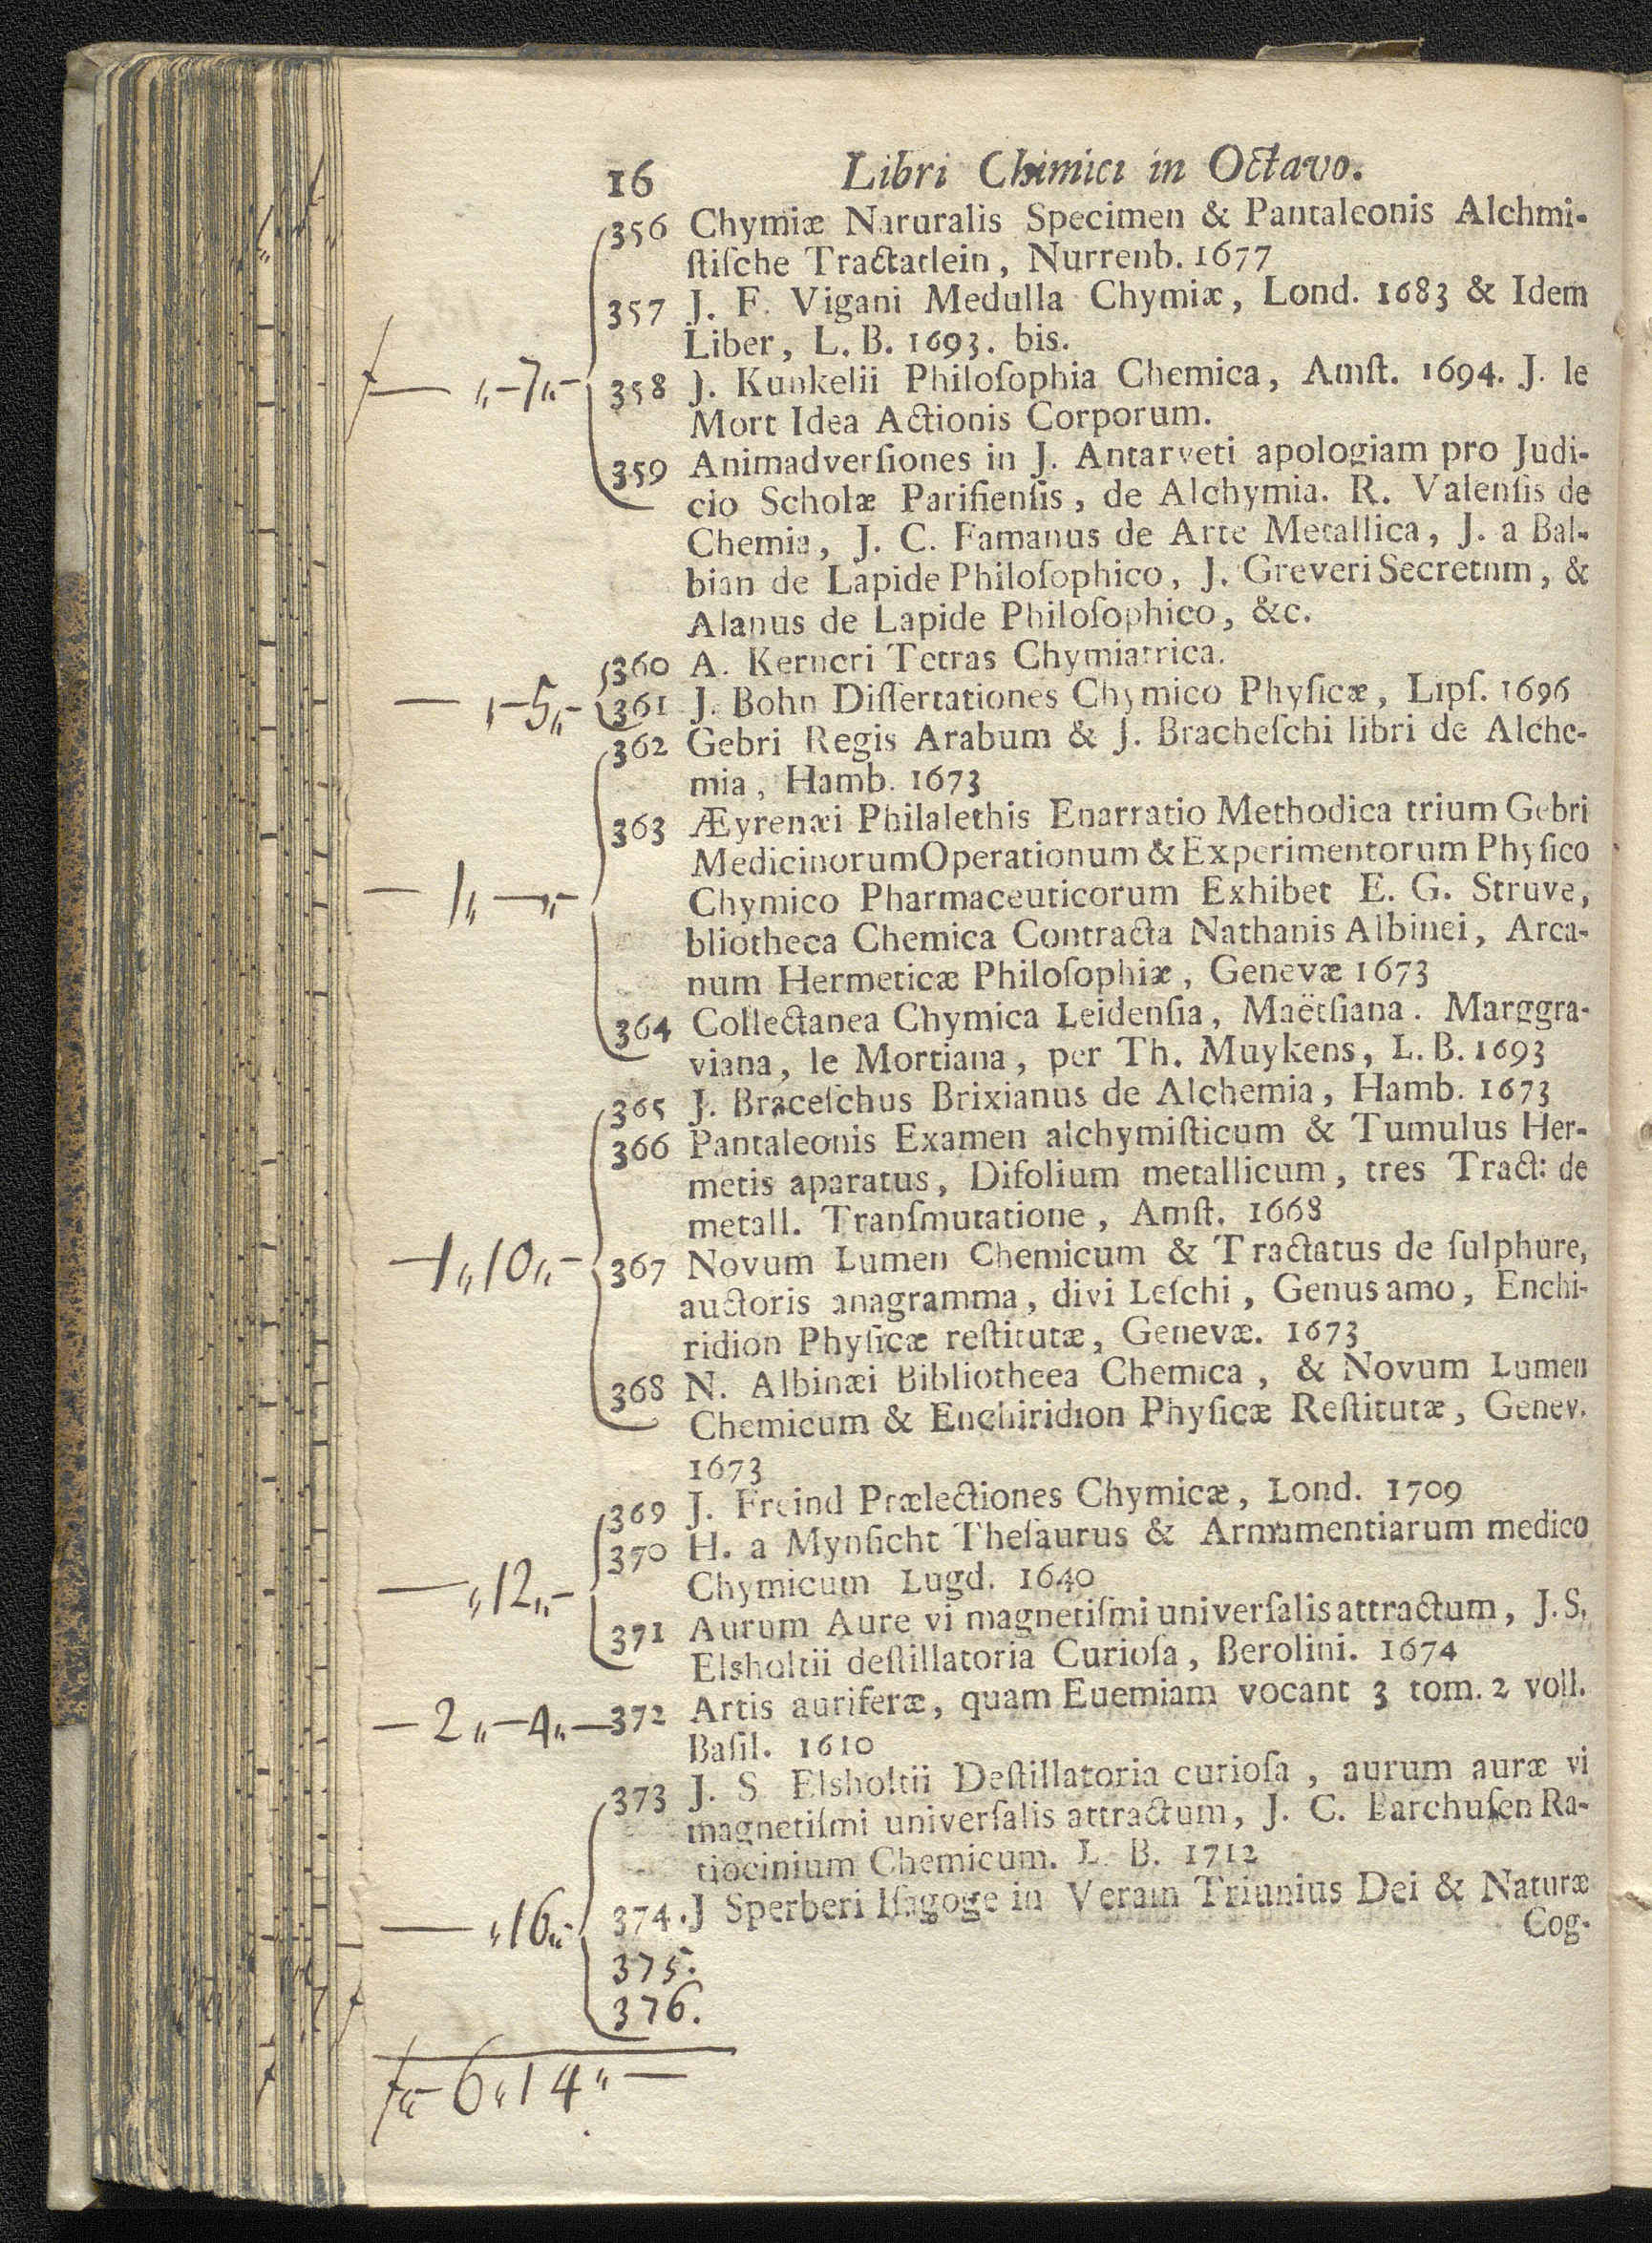 16 Libri Chimici in Octavo.
356 Chymiæ Naruralis Specimen & Pantaleonis Alchmi-
ſtiſche Tractatlein, Nurrenb. 1677
357 J. F. Vigani Medulla Chymiæ, Lond. 1683 & Idem
Liber, L. B. 1693. bis.
— „-7„- 358 J. Kunkelii Philoſophia Chemica, Amſt. 1694. J. le
Mort Idea Actionis Corporum.
359 Animadverſiones in J. Antarveti apologiam pro Judi-
cio Scholæ Pariſienſis, de Alchymia. R. Valenſis de
Chemia, J. C. Famanus de Arte Metallica, J. a Bal-
bian de Lapide Philoſophico, J. Greveri Secretnm, &
Alanus de Lapide Philoſophico, &c.
360 A. Kerneri Tetras Chymiatrica.
— „-5„- 361 J. Bohn Diſſertationes Chymico Phyſicæ, Lipſ. 1696
362 Gebri Regis Arabum & J. Bracheſchi libri de Alche-
mia, Hamb. 1673
363 Æyrenæi Philalethis Enarratio Methodica trium Gebri
MedicinorumOperationum & Experimentorum Phyſico
— 1„ —„- Chymico Pharmaceuticorum Exhibet E. G. Struve,
bliotheca Chemica Contracta Nathanis Albinei, Arca-
num Hermeticæ Philoſophiæ, Genevæ 1673
364 Collectanea Chymica Leidenſia, Maëtſiana. Marggra-
viana, le Mortiana, per Th. Muykens, L. B. 1693
365 J. Braceſchus Brixianus de Alchemia, Hamb. 1673
366 Pantaleonis Examen alchymiſticum & Tumulus Her-
metis aparatus, Difolium metallicum, tres Tract: de
metall. Tranſmutatione, Amſt. 1668
—1„10„- 367 Novum Lumen Chemicum & Tractatus de ſulphure,
auctoris anagramma, divi Leſchi, Genus amo, Enchi-
ridion Phyſicæ reſtitutæ, Genevæ. 1673
368 N. Albinæi Bibliotheea Chemica, & Novum Lumen
Chemicum & Enchiridion Phyſicæ Reſtitutæ, Genev.
1673
369 J. Freind Prælectiones Chymicæ, Lond. 1709
370 H. a Mynſicht Theſaurus & Armamentiarum medico
— „12„- Chymicum Lugd. 1640
371 Aurum Aure vi magnetiſmi univerſalis attractum, J. S.
Elsholtii deſtillatoria Curioſa, Berolini. 1674
— 2„-4„— 372 Artis auriferæ, quam Euemiam vocant 3 tom. 2 voll.
Baſil. 1610
373 J. S Elsholtii Deſtillatoria curioſa, aurum auræ vi
magnetiſmi univerſalis attractum, J. C. Barchuſen Ra-
tiocinium Chemicum. L. B. 1712
— „16„- 374. J Sperberi Iſagoge in Veram Triunius Dei & Naturæ
Cog-
375.
376.
ƒ„-6„14„—